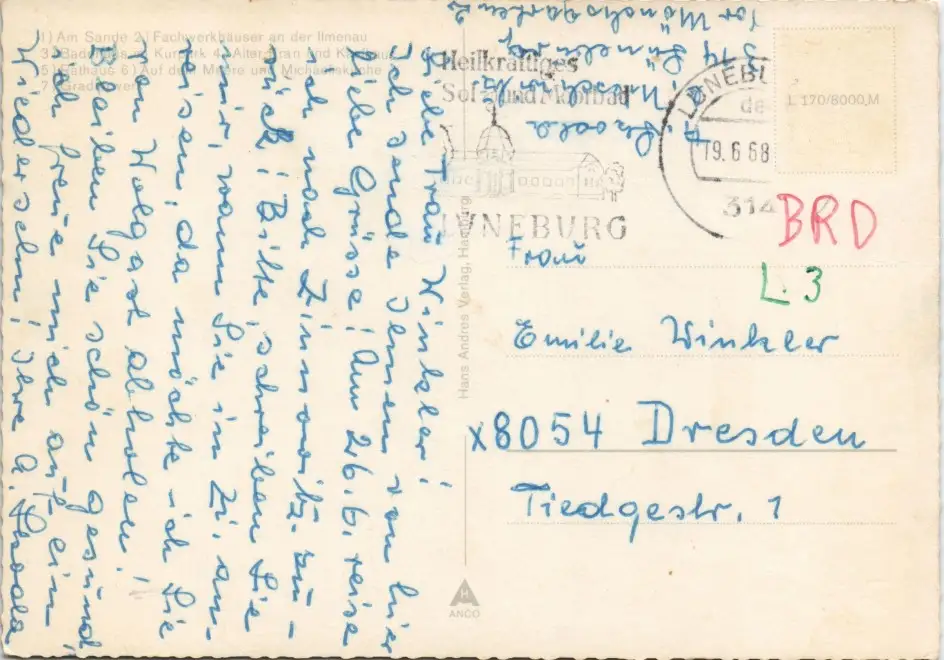 1) Am Sande 2) Fachwerkhäuser an der Ilmenau
3) Badehaus m. Kurpark 4) Alter Kran und Kaufhaus
5) Rathaus 6) Auf dem Meere und Michaeliskirche
7) Gradierwerk
Liebe Frau Winkler!
Ich sende Ihnen von hier
liebe Grüsse! Am 26.6. reise
ich nach Zinnowitz zu-
rück! Bitte, schreiben Sie
mir, wann Sie in Zi. an-
reisen, da möchte ich Sie
von Wolgast abholen!
Bleiben Sie schön gesund,
ich freue mich auf ein
Wiedersehn! Ihre A.
314 Lüneburg
Vor Mönchsgarten
Heilkräftiges
Sol- und Moorbad
LÜNEBURG
LÜNEBURG
19.6.68
314
L 170/8000 M
BRD
L 3
Hans Andres Verlag, Hamburg
Frau
Emilie Winkler
x8054 Dresden
Tiedgestr. 1
H
ANCO